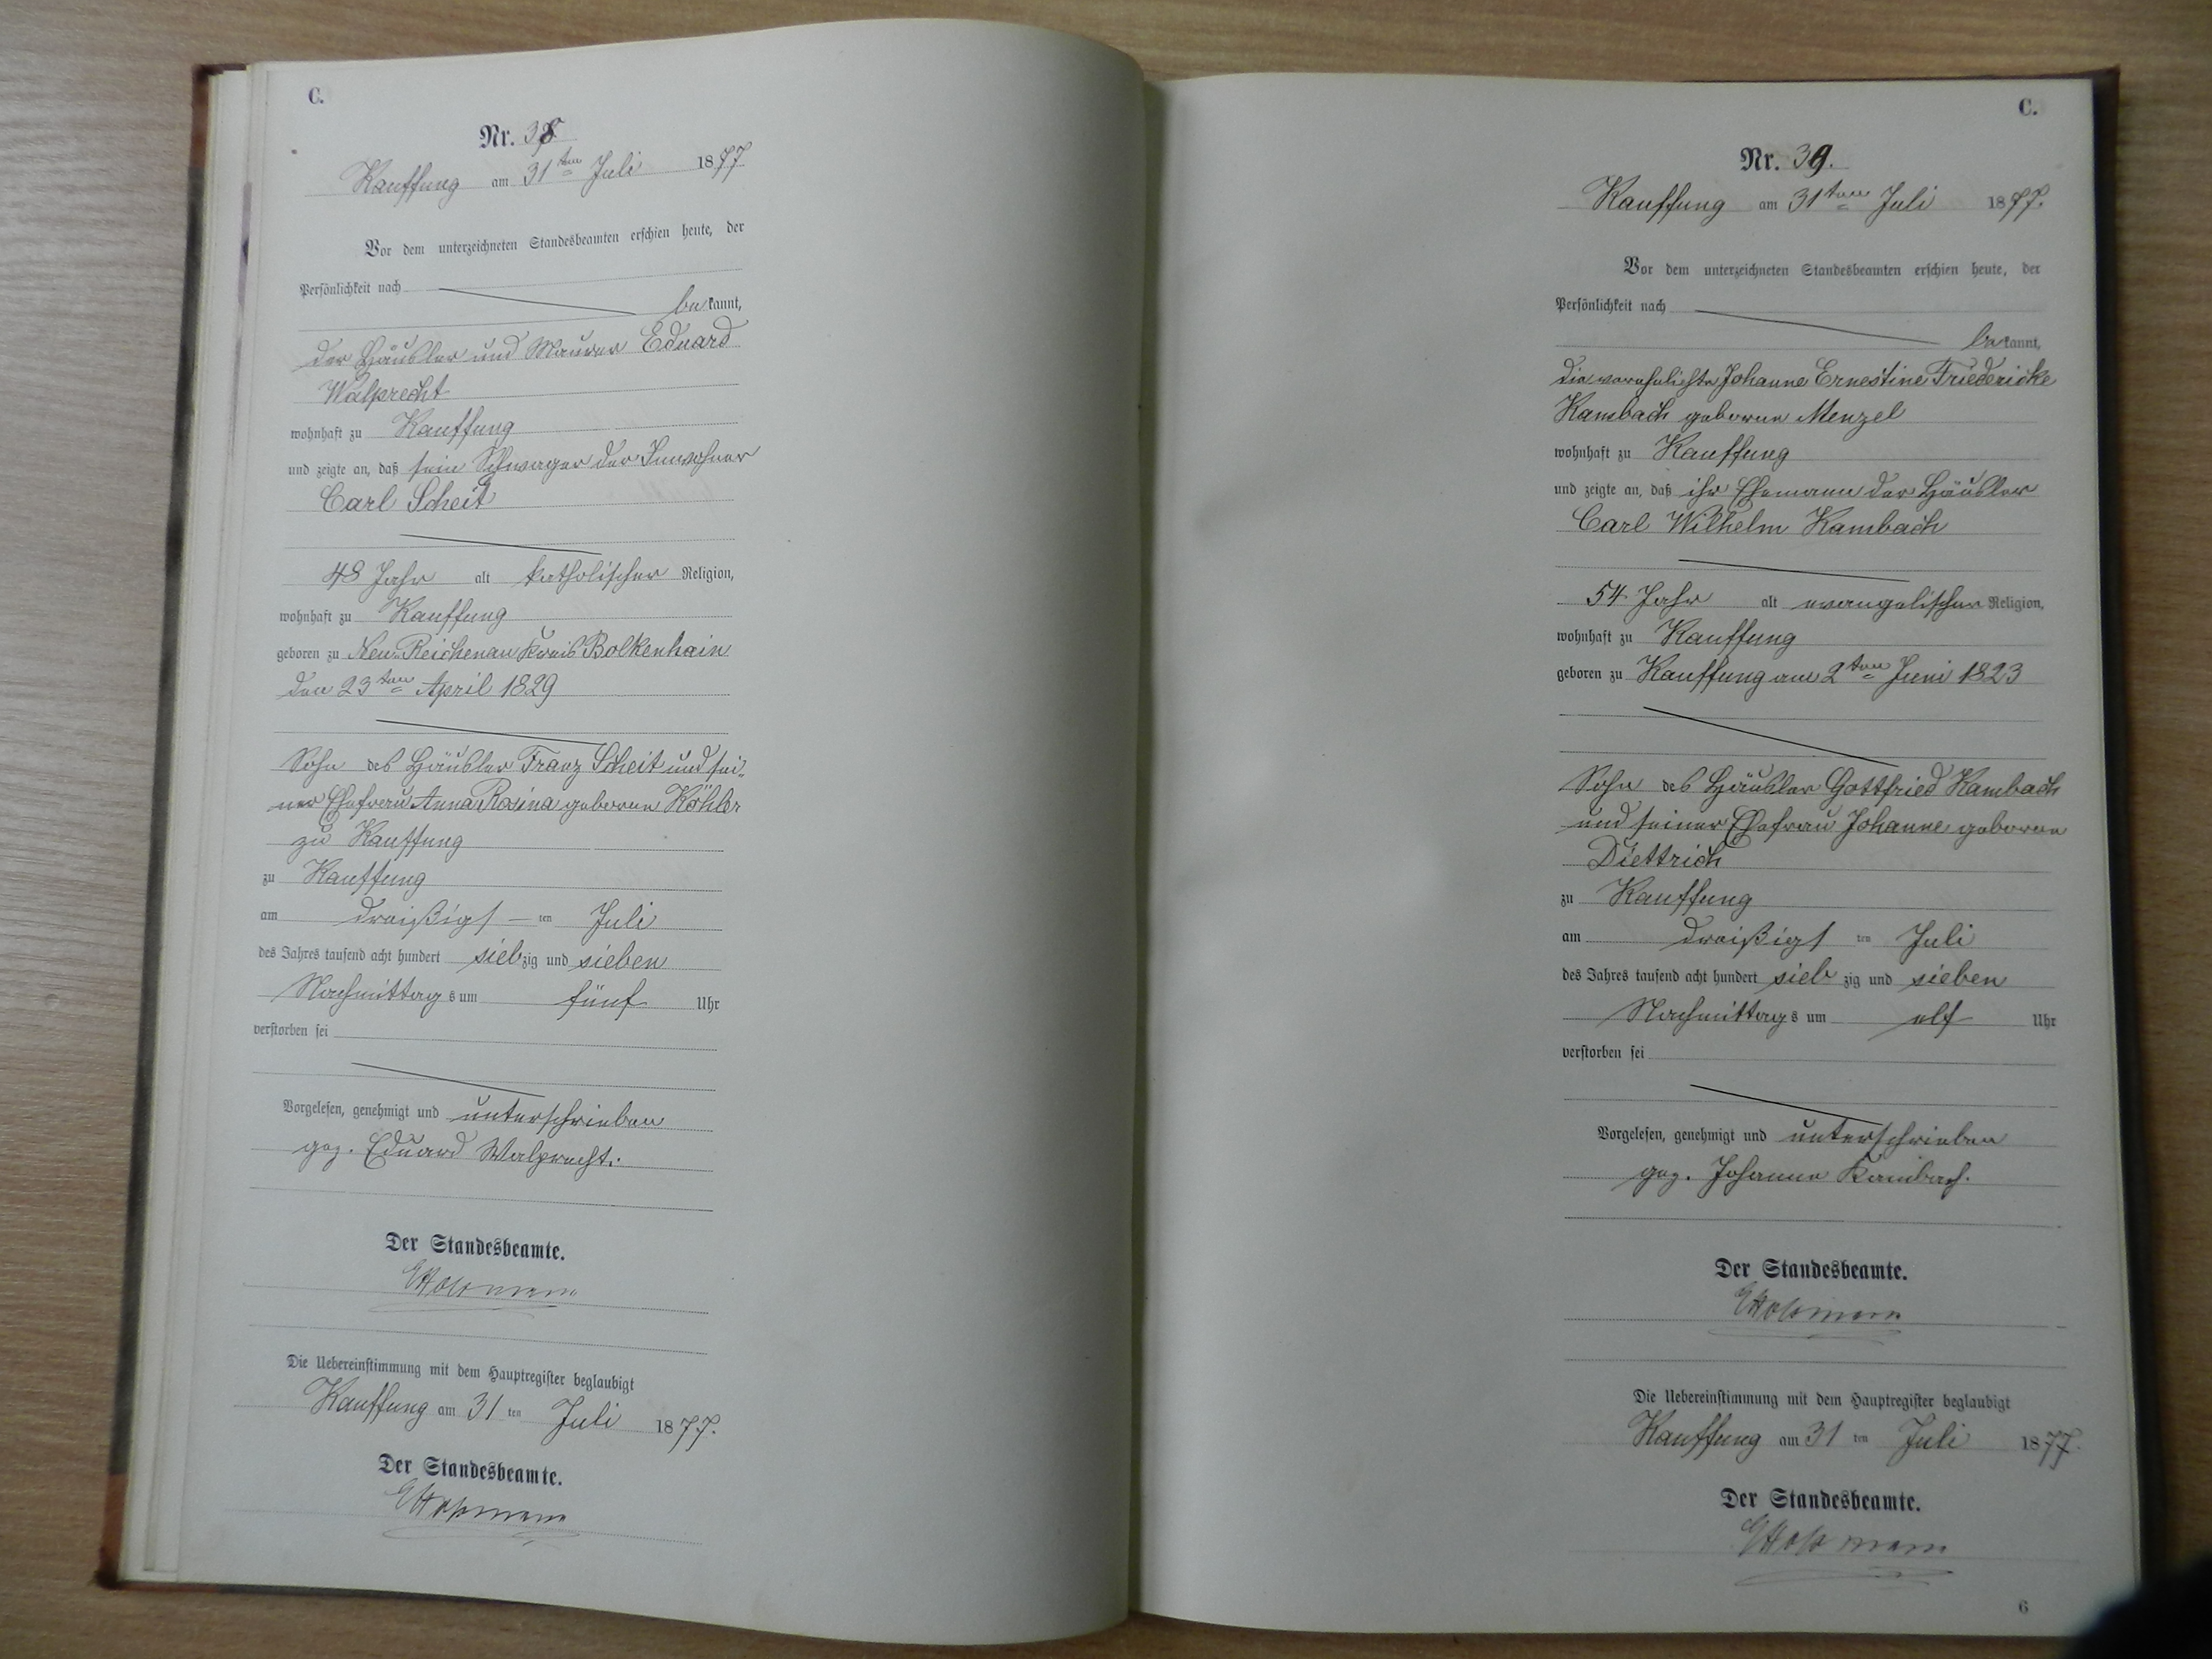 C.
Nr. 38.
Kauffung am 31ten Juli 1877
Vor dem unterzeichneten Standesbeamten erschien heute, der
Persönlichkeit nach
bekannt,
der Häusler und Maurer Eduard
Walprecht
wohnhaft zu Kauffung
und zeigte an, daß sein Schwager der Inwohner
Carl Scheit
48 Jahr alt katholischer Religion,
wohnhaft zu Kauffung
geboren zu Neu-Reichenau Kreis Bolkenhain
den 23ten April 1829
Sohn des Häusler Franz Scheit und sei-
ner Ehefrau Anna Rosina geborne Köhler
zu Kauffung
zu Kauffung
am dreißigst ten Juli
des Jahres tausend acht hundert siebzig und sieben
Nachmittags um fünf Uhr
verstorben sei
Vorgelesen, genehmigt und unterschrieben
gez. Eduard Walprecht.
Der Standesbeamte.
Die Uebereinstimmung mit dem Hauptregister beglaubigt
Kauffung am 31 ten Juli 1877.
Der Standesbeamte.
C.
Nr. 39.
Kauffung am 31ten Juli 1877.
Vor dem unterzeichneten Standesbeamten erschien heute, der
Persönlichkeit nach
bekannt,
die verehelichte Johanne Ernestine Friedericke
Kambach geborne Menzel
wohnhaft zu Kauffung
und zeigte an, daß ihr Ehemann der Häusler
Carl Wilhelm Kambach
54 Jahr alt evangelischer Religion,
wohnhaft zu Kauffung
geboren zu Kauffung am 2ten Juni 1823
Sohn des Häusler Gottfried Kambach
und seiner Ehefrau Johanne geborne
Diettrich
zu Kauffung
am dreißigst ten Juli
des Jahres tausend acht hundert siebzig und sieben
Nachmittags um elf Uhr
verstorben sei
Vorgelesen, genehmigt und unterschrieben
gez. Johanne Kambach.
Der Standesbeamte.
Die Uebereinstimmung mit dem Hauptregister beglaubigt
Kauffung am 31 ten Juli 1877.
Der Standesbeamte.
6